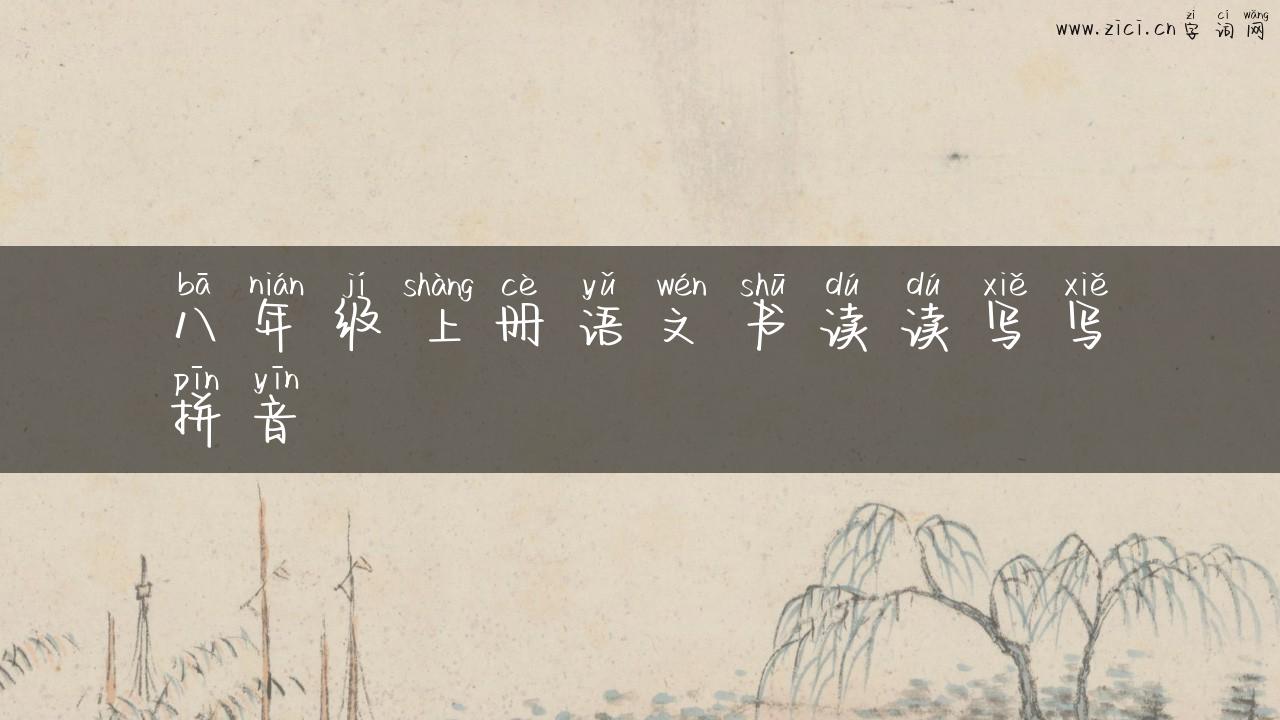 zì cí wǎng
www.zici.cn 字词网
bā nián jí shàng cè yǔ wén shū dú dú xiě xiě
八年级上册语文书读读写写
pīn yīn
拼音